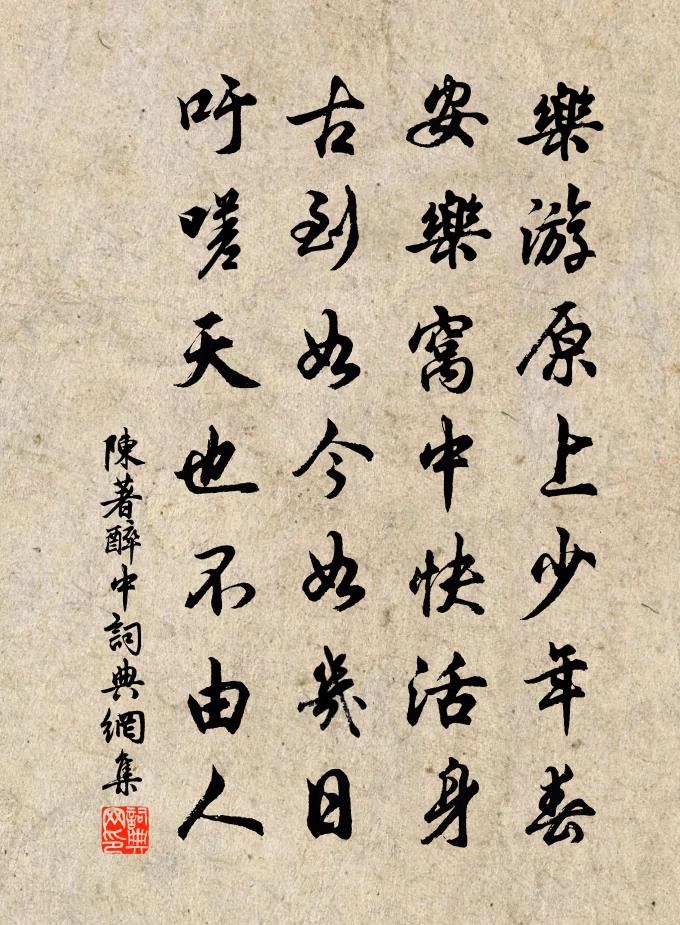 樂游原上少年春
安樂窩中快活身
古到如今如幾日
吁嗟天也不由人
陳著醉中詞典網集
詞典网印